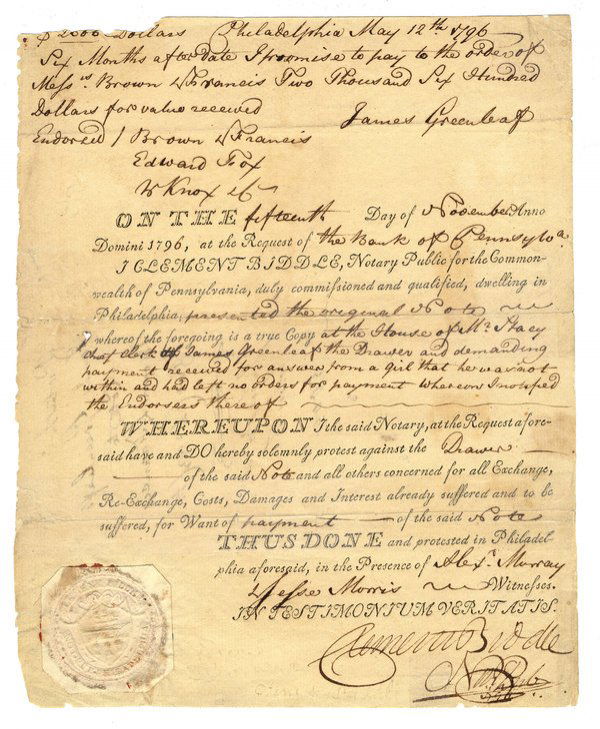 $ 2600 Dollars Philadelphia May 12th 1796
Six Months after Date I promise to pay to the order of
Messrs Brown & Francis Two Thousand Six Hundred
Dollars for value received
James Greenleaf
Endorsed / Brown & Francis
Edward Fox
W Knox
ON THE fifteenth Day of November Anno
Domini 1796, at the Request of the Bank of Pennsylva
I CLEMENT BIDDLE, Notary Public for the Common-
wealth of Pennsylvania, duly commissioned and qualified, dwelling in
Philadelphia, presented the original Note
whereof the foregoing is a true Copy at the House of Mr Stacy
chief clerk of James Greenleaf the Drawer and demanding
payment received for answer from a girl that he was not
within and had left no orders for payment whereon I notifyed
the Endorsers there of
WHEREUPON I the said Notary, at the Request afore-
said have and DO hereby solemnly protest against the Drawer
of the said Note and all others concerned for all Exchange,
Re-Exchange, Costs, Damages and Interest already suffered and to be
suffered, for Want of payment of the said Note
THUS DONE and protested in Philadel-
phia aforesaid, in the Presence of Alexr Murray
& Jesse Morris Witnesses.
IN TESTIMONIUM VERITATIS.
Clement Biddle
Not. Pub.
1796